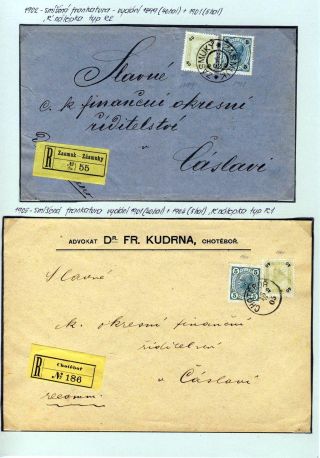 1902 - smíšená frankatura - vydání 1899 (40hal) + 1901 (5hal)
, R nálepka typ R2
Slavné
c. k finanční okresní
ředitelství
v
Čáslavi
ZÁSMUKY
R
Zasmuk - Zásmuky
№ 55
1905 - smíšená frankatura vydání 1901 + 1904 , R nálepka typ R1
ADVOKÁT DR. FR. KUDRNA, CHOTĚBOŘ.
Slavné
5 5
k. okresní finanční
ředitelství
v Čáslavi
R
Chotěboř
№ 186
recomm.